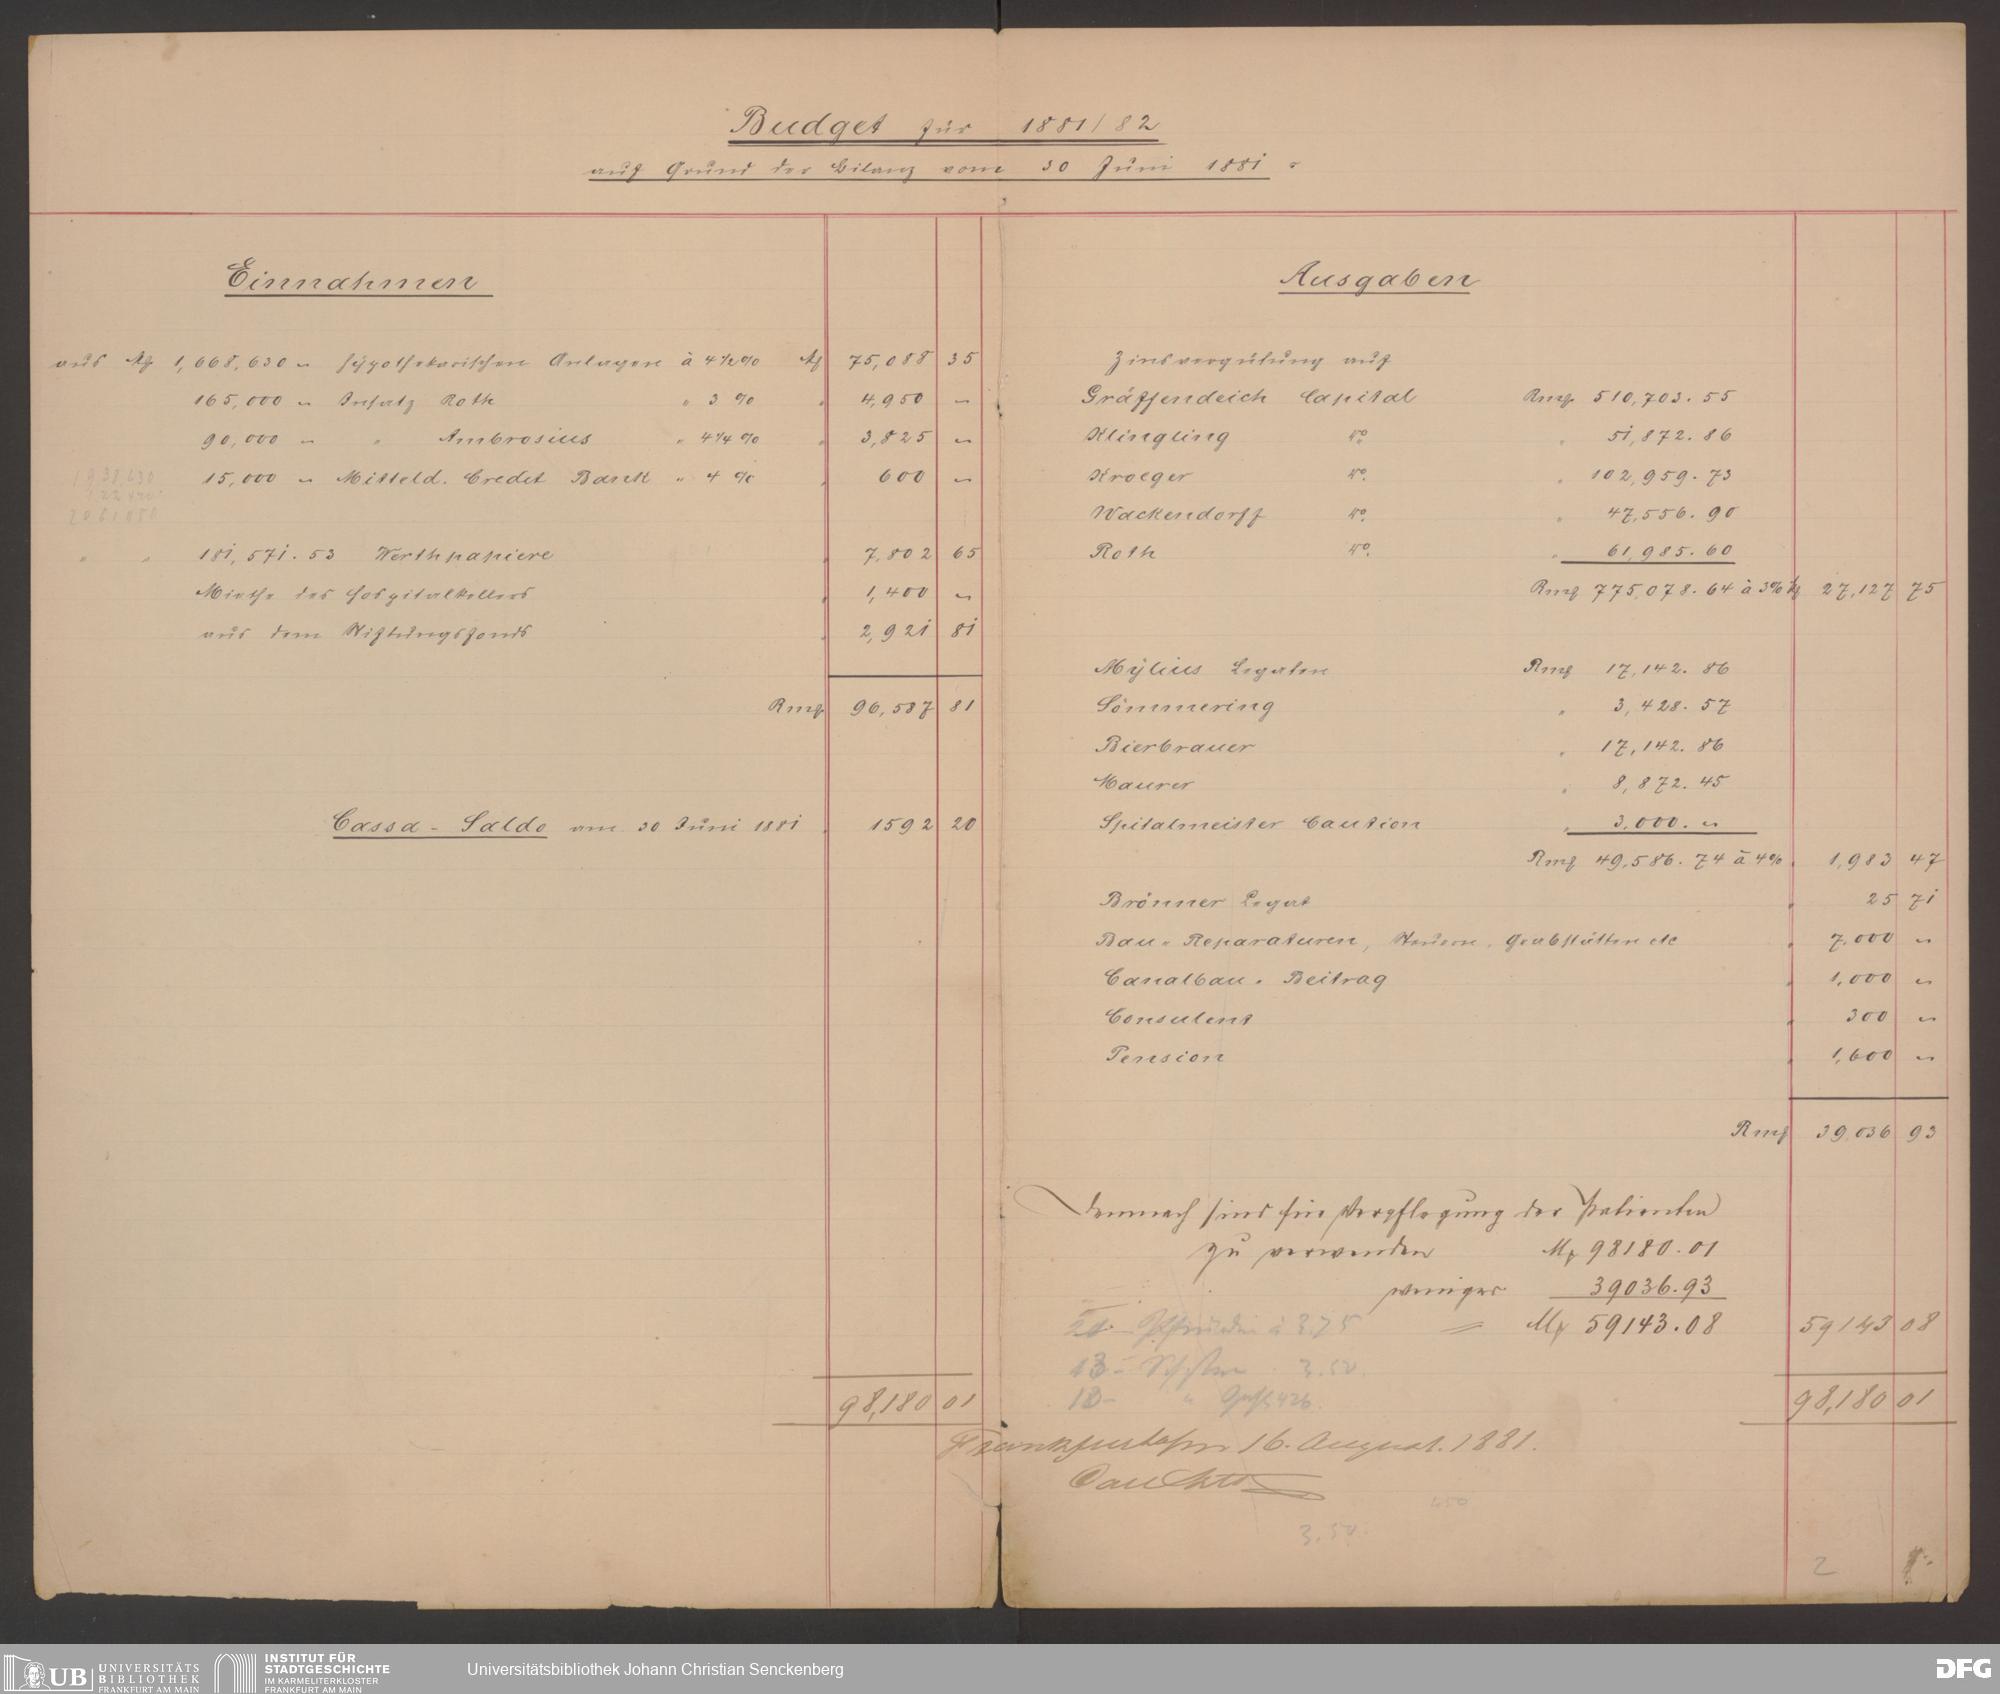 Budget für 1881/82
auf Grund der Bilanz vom 30 Juni 1881.
Einnahmen
aus M 1,668,630 „ hypothekarischen Anlagen à 4½% M 75,088 35
165,000 „ Insatz Roth „ 3 % „ 4,950 „
90,000 „ „ Ambrosius „ 4¼% „ 3,825 „
15,000 „ Mitteld. Credit Bank „ 4 % „ 600 „
1938630
122420
2061050
„ „ 181,571.53 Werthpapiere „ 7,802 65
Miethe des Hospitalkellers „ 1,400 „
aus dem Stiftungsfonds „ 2,921 81
Rmk 96,587 81
Cassa-Saldo am 30 Juni 1881 „ 1592 20
98,180 01
Ausgaben
Zinsvergütung auf
Gräffendeich Capital Rmk 510,703.55
Klingling do „ 51,872.86
Kroeger do. „ 102,959.73
Wackendorff do. „ 47,556.90
Roth do. „ 61,985.60
Rmk 775,078.64 à 3½% M 27,127 75
Mÿlius Legaten Rmk 17,142.86
Sömmering „ 3,428.57
Bierbrauer „ 17,142.86
Maurer „ 8,872.45
Spitalmeister Caution „ 3,000.„
Rmk 49,586.74 à 4% „ 1,983 47
Brönner Legat „ 25 71
Bau-Reparaturen, Steuern, Grabstätten etc „ 7,000 „
Canalbau-Beitrag „ 1,000 „
Consulent „ 300 „
Pension „ 1,600 „
Rmk 39,036 93
Demnach sind für Verpflegung der Patienten
zu verwenden M 98180.01
weniger 39036.93
= M 59143.08 59143 08
à 3.75
13 - 3.50.
98,180 01
Frankfurt a/m 16. August. 1881.
450
3.50.
2
UB UNIVERSITÄTS BIBLIOTHEK FRANKFURT AM MAIN
INSTITUT FÜR STADTGESCHICHTE IM KARMELITERKLOSTER FRANKFURT AM MAIN
Universitätsbibliothek Johann Christian Senckenberg
DFG